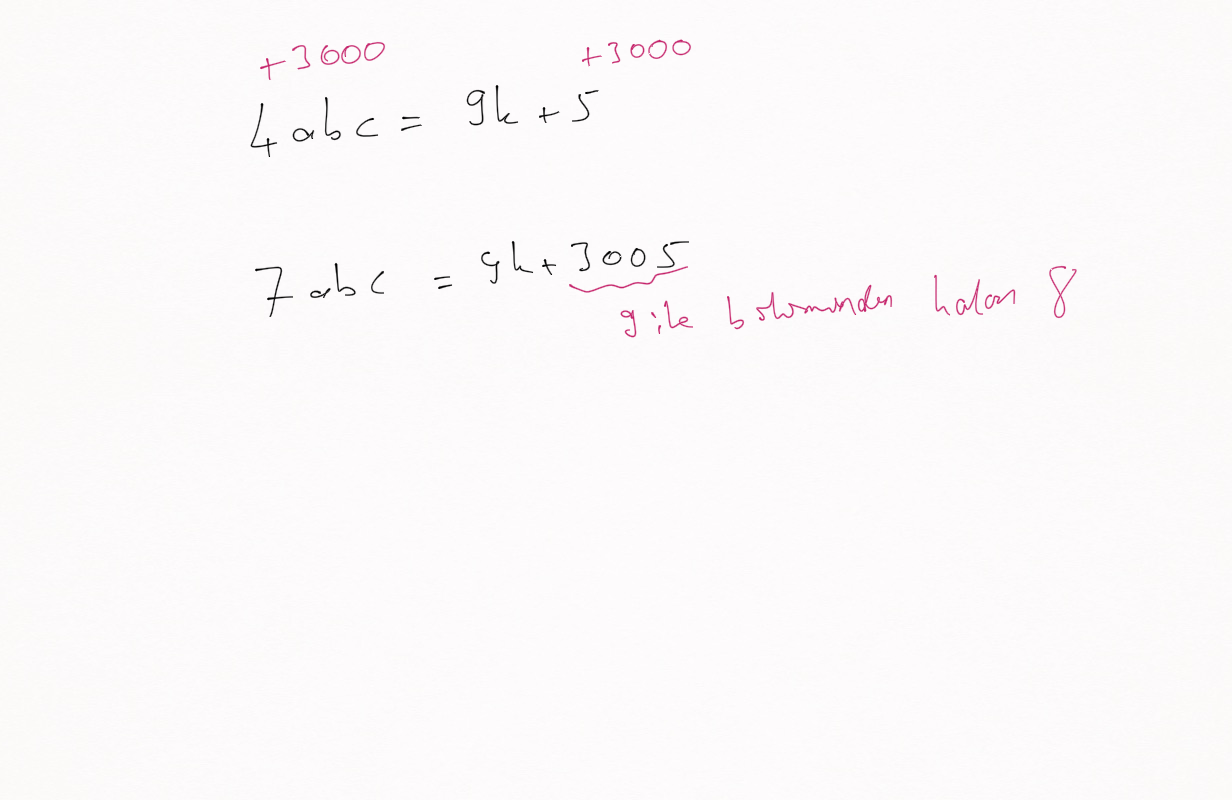 +3000 +3000
4abc = 9k + 5
7abc = 9k + 3005
9 ile bölümünden kalan 8